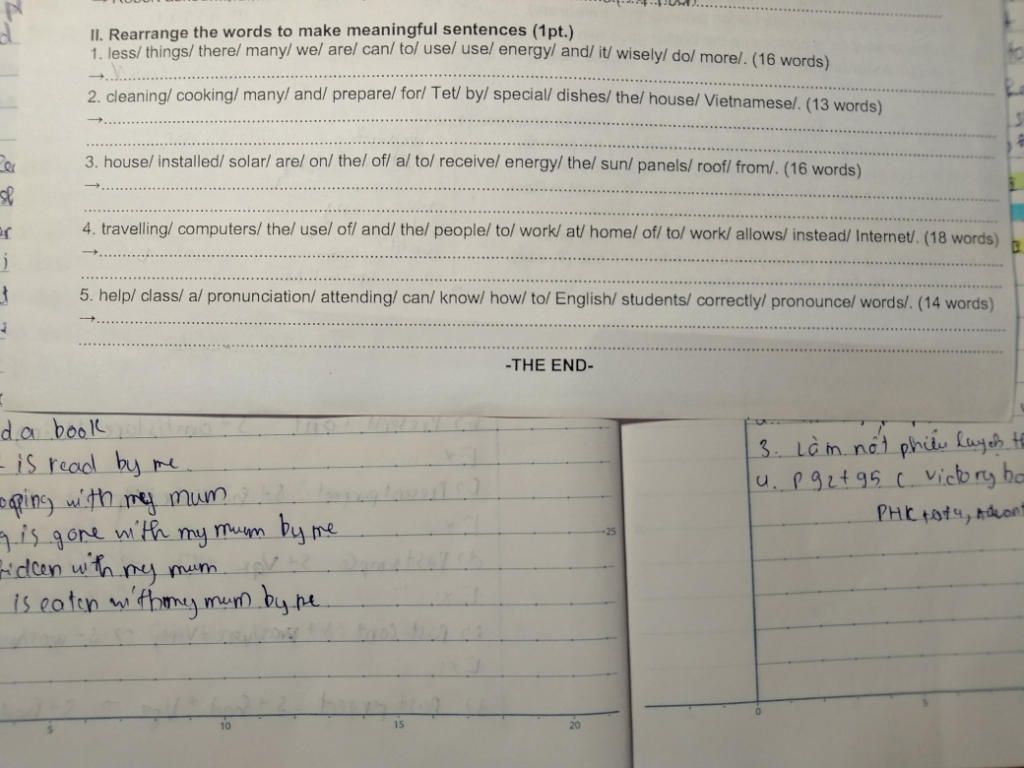 II. Rearrange the words to make meaningful sentences (1pt.)
1. less/ things/ there/ many/ we/ are/ can/ to/ use/ use/ energy/ and/ it/ wisely/ do/ more/. (16 words)
→
2. cleaning/ cooking/ many/ and/ prepare/ for/ Tet/ by/ special/ dishes/ the/ house/ Vietnamese/. (13 words)
→
3. house/ installed/ solar/ are/ on/ the/ of/ a/ to/ receive/ energy/ the/ sun/ panels/ roof/ from/. (16 words)
→
4. travelling/ computers/ the/ use/ of/ and/ the/ people/ to/ work/ at/ home/ of/ to/ work/ allows/ instead/ Internet/. (18 words)
→
5. help/ class/ a/ pronunciation/ attending/ can/ know/ how/ to/ English/ students/ correctly/ pronounce/ words/. (14 words)
→
-THE END-
d a book
is read by me
with my mum
is gone with my mum by me
with my mum
is eaten with my mum by me
25
5 10 15 20
3. Làm nốt phiếu
4. P 92 + 95 C. victory
0 5